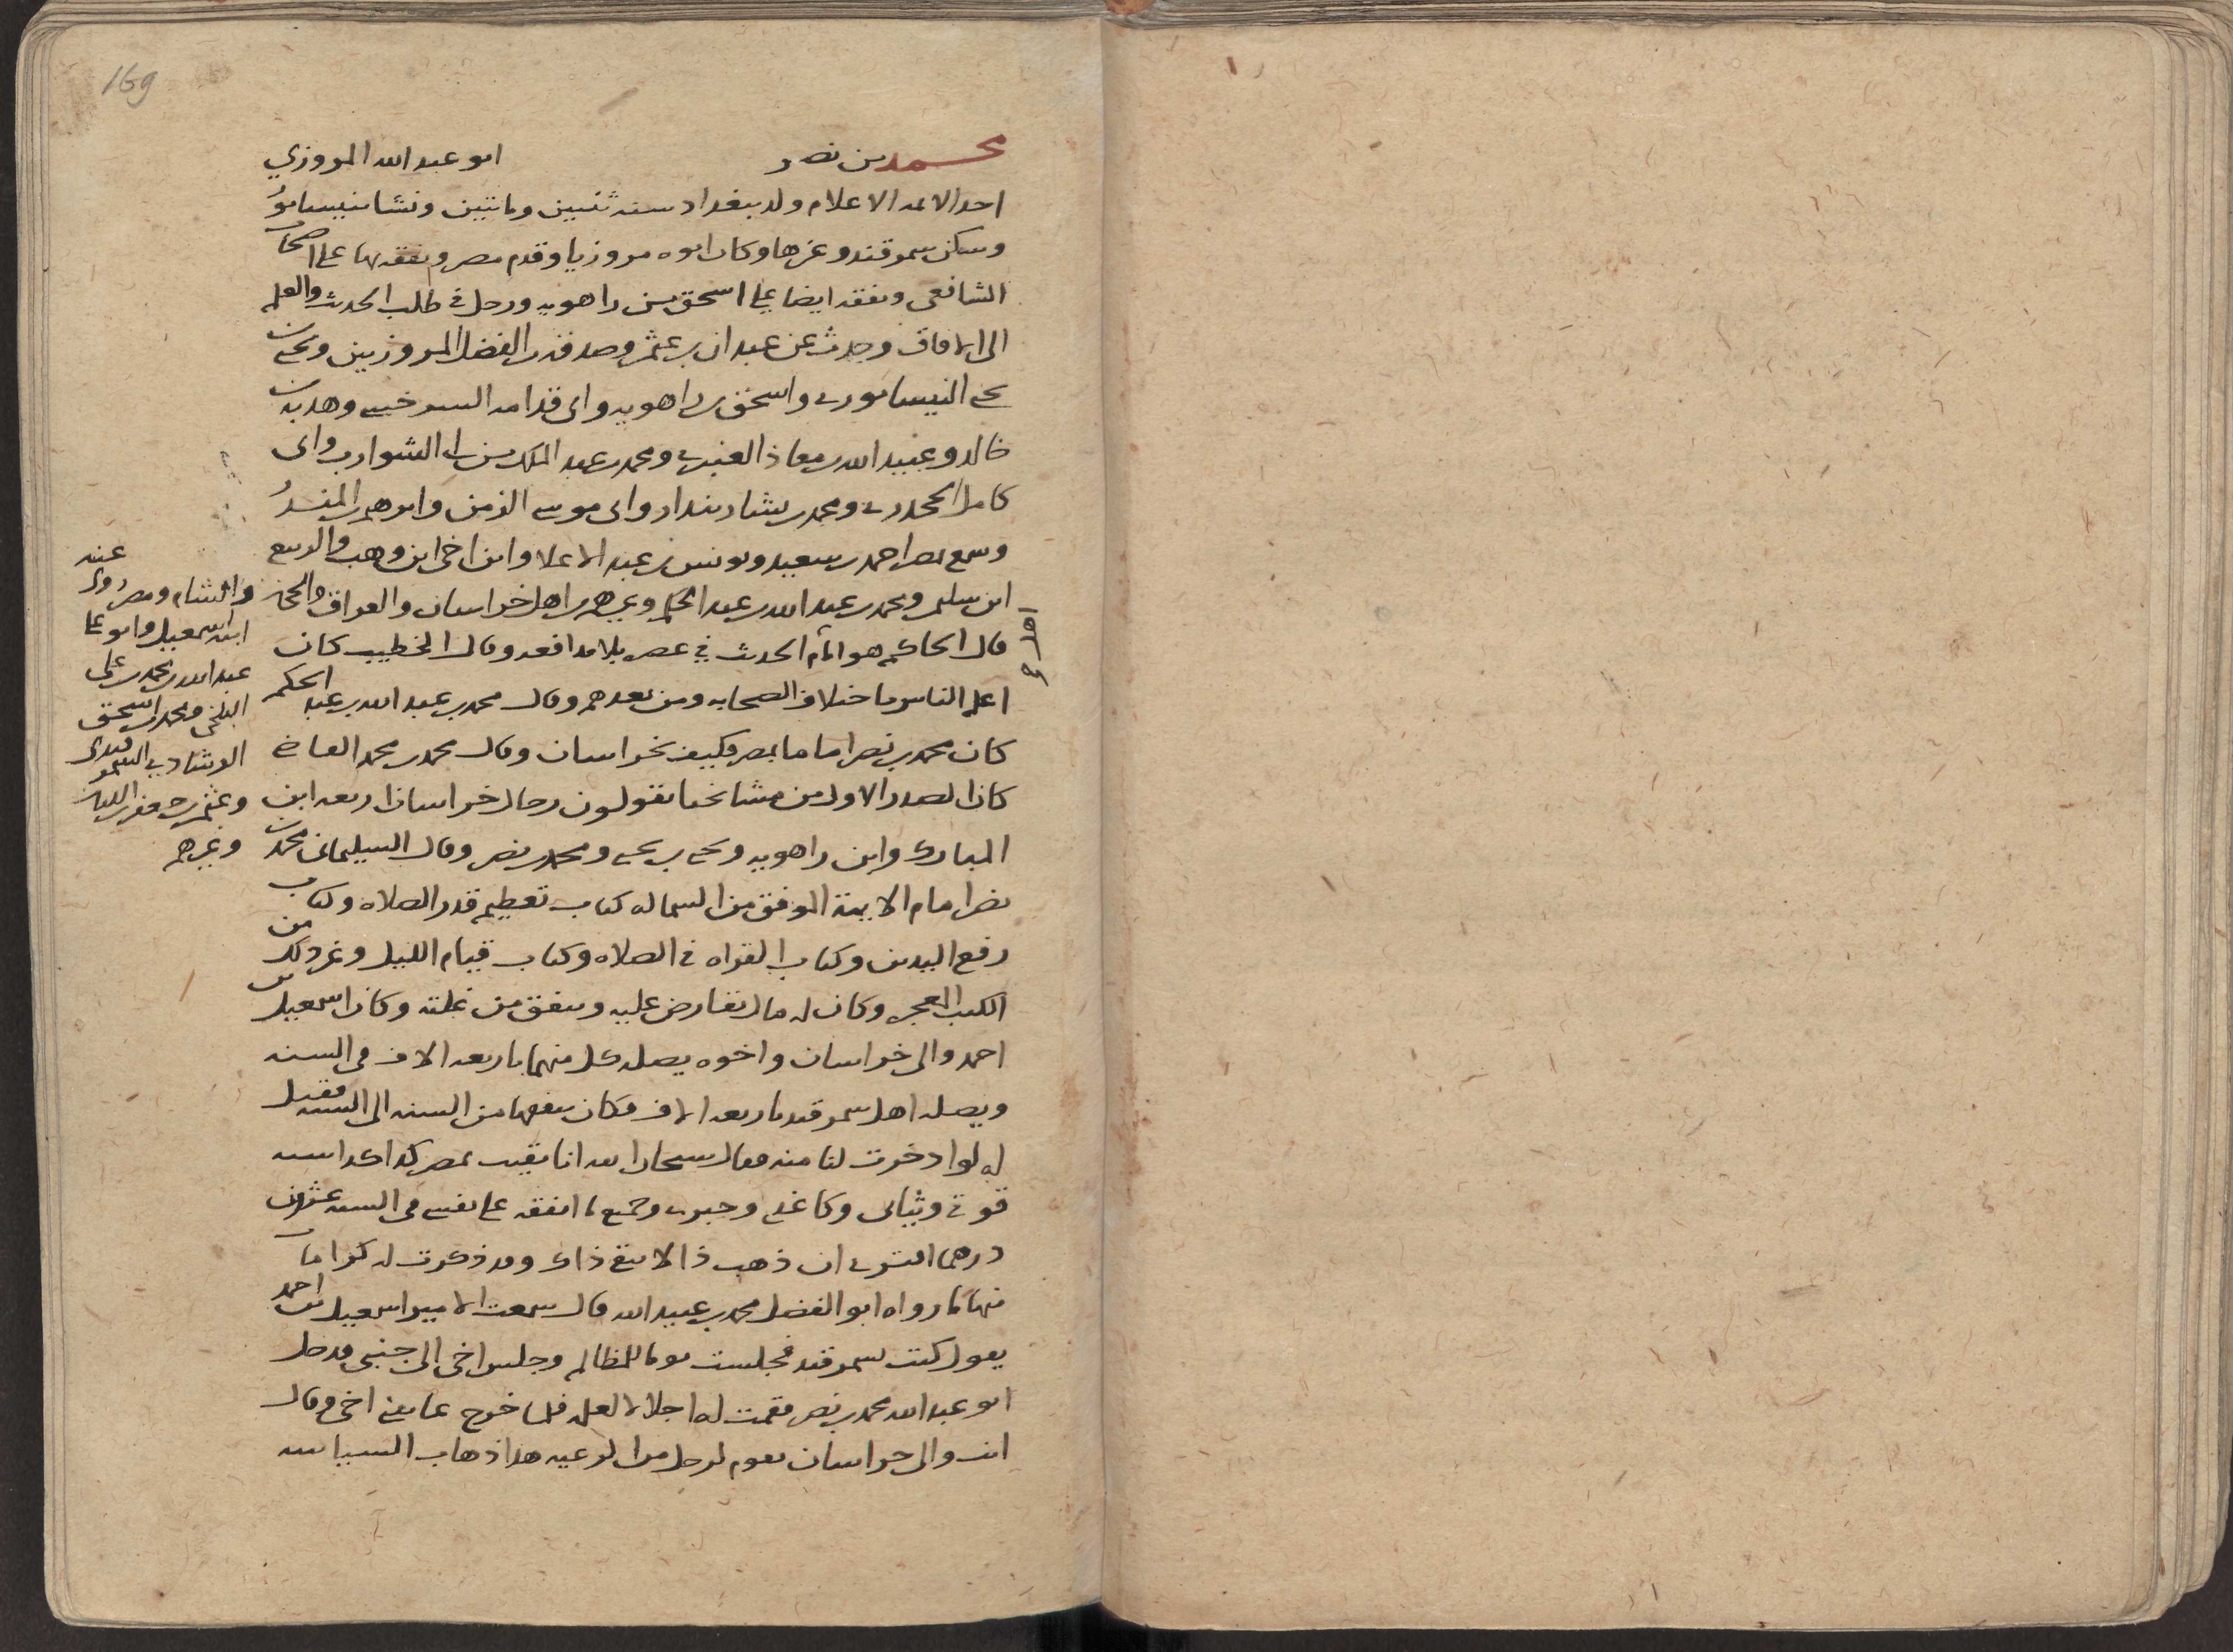 169
محمد بن نصر ابو عبد الله المروزي
احد الائمه الاعلام ولد ببغداد سنه ثنتين ومائتين ونشا بنيسابور
وسكن سمرقند وغيرها وكان ابوه مروزيا وقدم مصر وتفقه بها على اصحاب
الشافعي وتفقه ايضا على اسحق بن راهويه ورحل في طلب الحديث والعلم
الى الافاق وحدث عن عبدان بن عثمن وصدقه بن الفضل المروزيين ويحيى بن
يحيى النيسابوري واسحق بن راهويه وابى قدامه السرخسي وهدبه بن
خالد وعبيد الله بن معاذ العنبري ومحمد بن عبد الملك بن ابي الشوارب وابى
كامل الجحدري ومحمد بن بشار بندار وابى موسى الزمن وابرهيم بن المنذر
وسمع بمصر احمد بن سعيد ويونس بن عبد الاعلا وابن اخي ابن وهب والربيع
ابن سليمن ومحمد بن عبد الله بن عبد الحكم وغيرهم من اهل خراسان والعراق والحجاز
قال الحاكم هو امام اهل الحديث في عصره بلا مدافعه وقال الخطيب كان
اعلم الناس باختلاف الصحابه ومن بعدهم وقال محمد بن عبد الله بن عبد الحكم
كان محمد بن نصر اماما بمصر فكيف بخراسان وقال محمد بن محمد القاضي
كان الصدر الاول من مشائخنا يقولون رجال خراسان اربعه ابن
المبارك وابن راهويه ويحيى بن يحيى ومحمد بن نصر وقال السليماني محمد بن
نصر امام الائمة الموفق من السما له كتاب تعظيم قدر الصلاه وكتاب
رفع اليدين وكتاب القراه في الصلاه وكتاب قيام الليل وغير ذلك من
الكتب المعجزه وكان له مال يقارض عليه وينفق من غلته وكان اسمعيل بن
احمد والى خراسان واخوه يصله كل منهما باربعه الاف في السنه
ويصله اهل سمرقند باربعه الاف فكان ينفقها من السنه الى السنه فقيل
له لو ادخرت لنا منه فقال سبحان الله انا بقيت بمصر كذا كذا سنه
قوتي وثيابي وكاغدي وحبري وجميع ما انفقه على نفسي في السنه عشرون
درهما افترى ان ذهب ذا لا يبقى ذاك وقد ذكرت له كرامات
منها ما رواه ابو الفضل محمد بن عبيد الله قال سمعت الامير اسمعيل بن احمد
يقول كنت بسمرقند فجلست يوما للمظالم وجلس اخي الى جنبي فدخل
ابو عبد الله محمد بن نصر فقمت له اجلالا لعلمه فلما خرج عاتبني اخي وقال
انت والى خراسان تقوم لرجل من الرعيه هذا ذهاب السياسه
والشام ومصر روى عنه
ابنه اسمعيل وابو على
عبد الله بن محمد بن على
البلخي ومحمد بن اسحق
الرشادي السمرقندي
وعثمن بن جعفر اللبان
وغيرهم